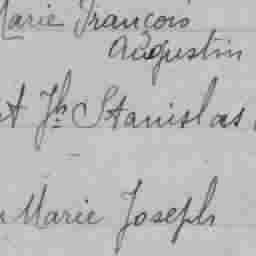 Marie François
Augustin
t Jh Stanislas
Marie Joseph